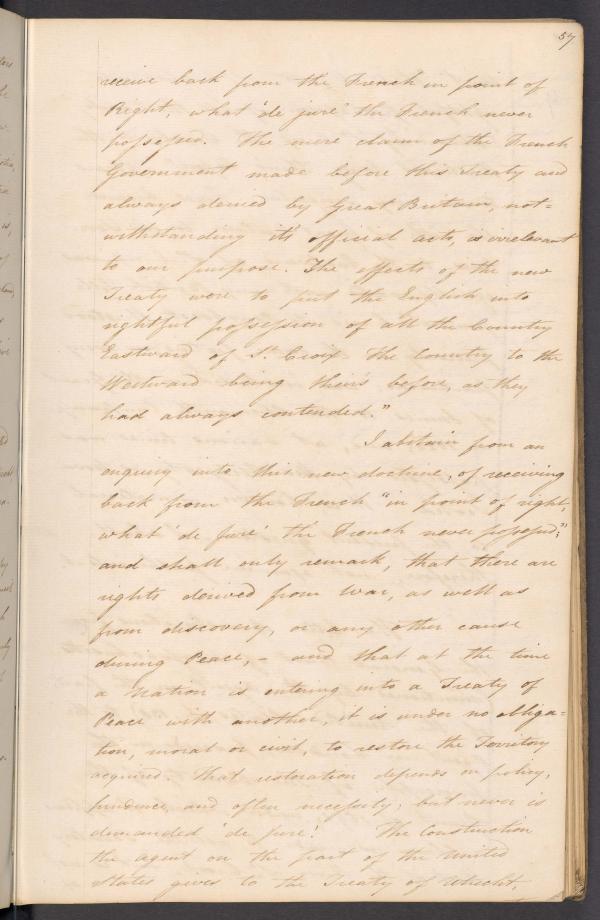 57
receive back from the French in point of
Right, what 'de jure' the French never
possessed. The mere claim of the French
Government made before this Treaty and
always denied by Great Britain, not=
withstanding it's official acts, is irrelevant
to our purpose. The effects of the new
Treaty were to put the English into
rightful possession of all the Country
Eastward of St. Croix The Country to the
Westward being their's before, as they
had always contended."
I abstain from an
enquiry into this new doctrine, of receiving
back from the French "in point of right,
what 'de jure' the French never possessed;"
and shall only remark, that there are
rights derived from War, as well as
from discovery, or any other cause
during Peace, - and that at the time
a Nation is entering into a Treaty of
Peace with another, it is under no obliga=
tion, moral or civil, to restore the Territory
acquired. That restoration depends on policy,
prudence, and often necessity; but never is
demanded 'de jure'. The Construction
the agent on the part of the United
States gives to the Treaty of Utrecht,